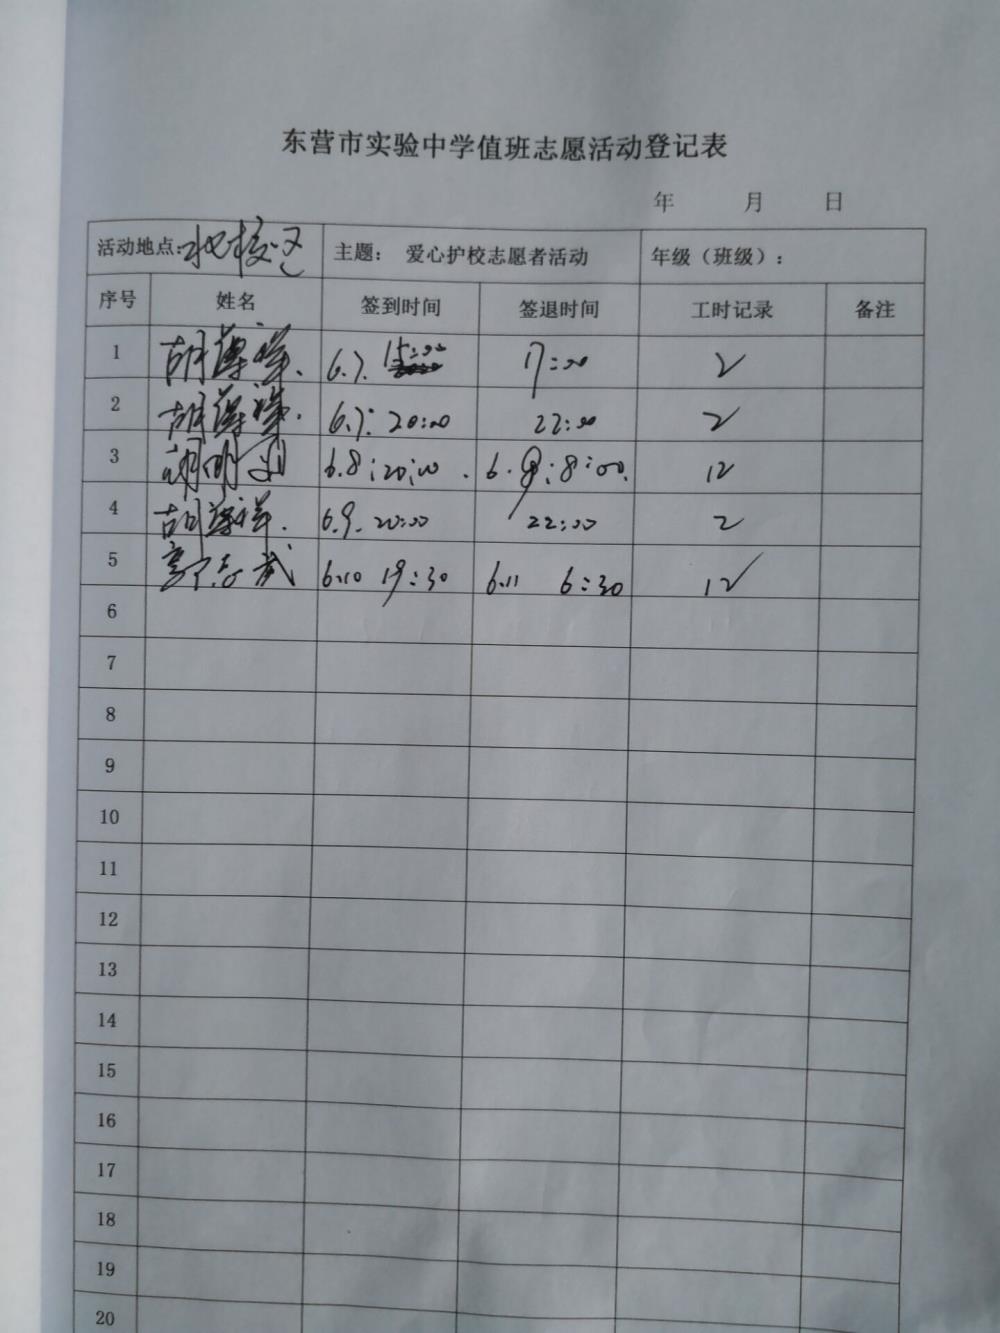 东营市实验中学值班志愿活动登记表
年 月 日
活动地点:北校区 主题： 爱心护校志愿者活动 年级（班级）：
序号 姓名 签到时间 签退时间 工时记录 备注
1 胡 6.7. 15:00 17:00 2
2 胡 6.7: 20:00 22:00 2
3 胡明 6.8:20:00. 6.9:8:00. 12
4 胡 6.9. 20:00 22:00 2
5 郭志武 6.10 19:30 6.11 6:30 12
6
7
8
9
10
11
12
13
14
15
16
17
18
19
20